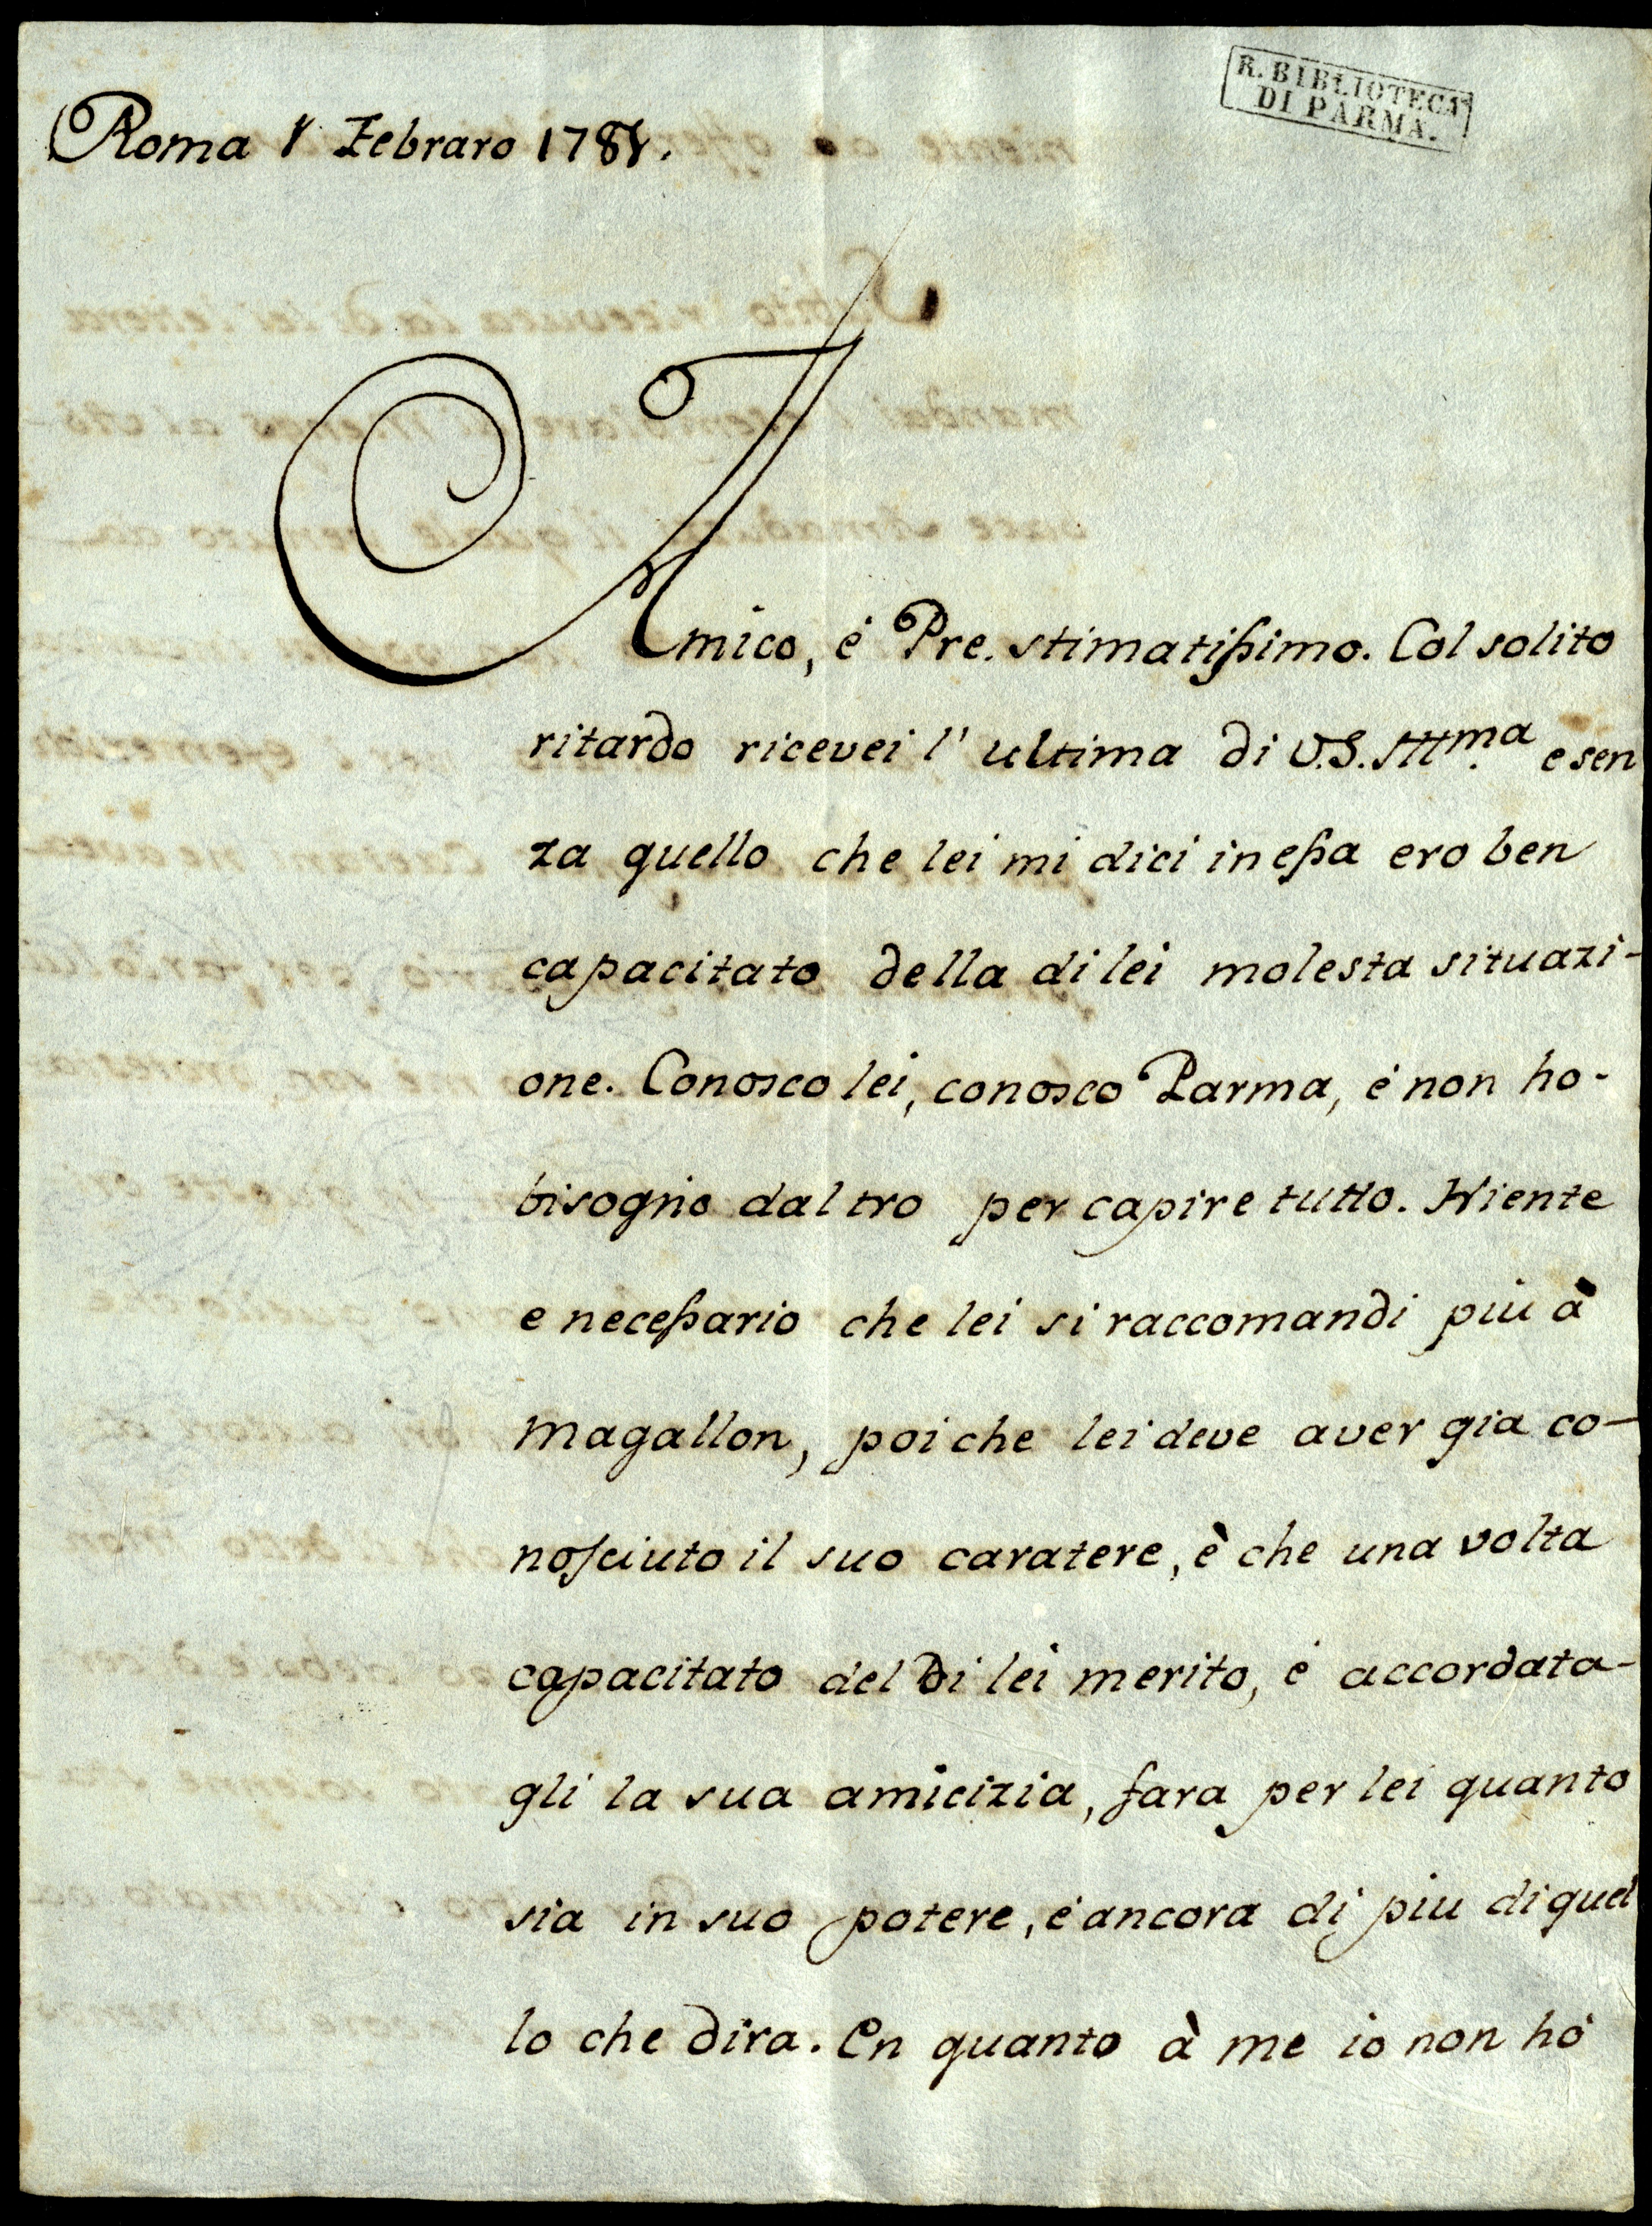 R. BIBLIOTECA
DI PARMA.
Roma 1 Febraro 1781.
Amico, é Pre. stimatissimo. Col solito
ritardo ricevei l' ultima di V.S. Illma. e sen
za quello che lei mi dici in essa ero ben
capacitato della di lei molesta situazi-
one. Conosco lei, conosco Parma, é non ho-
bisogno daltro per capire tutto. Niente
e necessario che lei si raccomandi piu à
Magallon, poi che lei deve aver gia co-
nosciuto il suo caratere, è che una volta
capacitato del di lei merito, é accordata-
gli la sua amicizia, fara per lei quanto
sia in suo potere, é ancora di piu di quel
lo che dira. En quanto à me io non hó